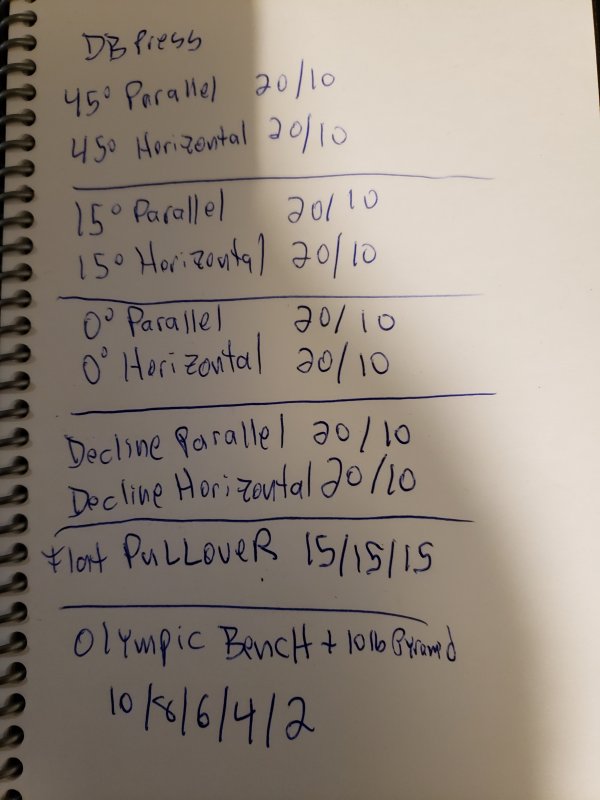 DB Press
45° Parallel 20/10
45° Horizontal 20/10
15° Parallel 20/10
15° Horizontal 20/10
0° Parallel 20/10
0° Horizontal 20/10
Decline Parallel 20/10
Decline Horizontal 20/10
Flat PullOveR 15/15/15
Olympic Bench + 10lb Pyramid
10/8/6/4/2